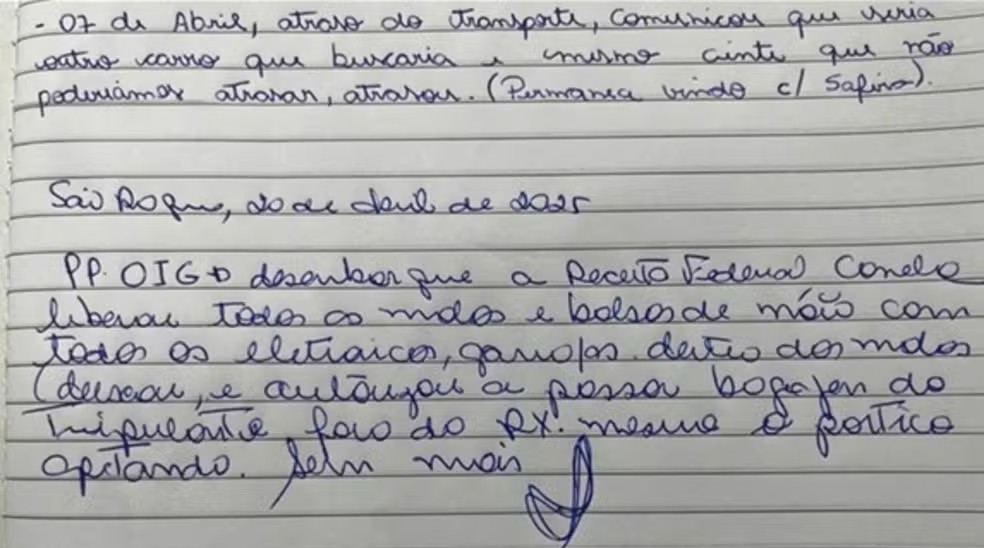 - 07 de Abril, atraso do transporte, comunicou que viria
outro carro que buscaria e mesmo ciente que não
poderiamos atrasar, atrasou. (Permanea vindo c/ Safira).
São Roque, 20 de Abril de 2025
PP. OIG desembarque a Receita Federal Conelo
liberou todos as malas e bolsas de mão com
todos os eletronicos, garrafas dentro das malas
(deixou, e autorizou a passar bagagem do
tripulante fora do RX. mesmo o portico
apitando. Sem mais